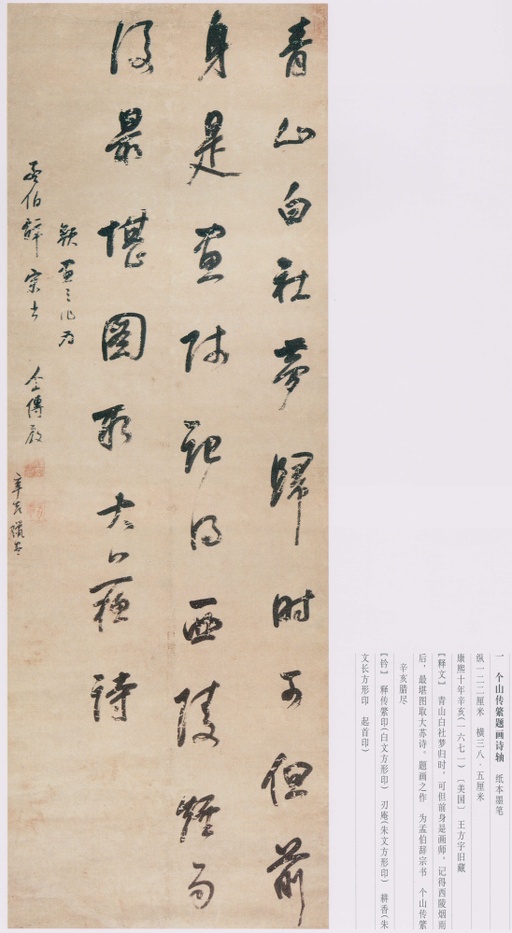 青山白社夢歸時可但前
身是画师記得西陵煙雨
後最堪圖取大蘇詩
題画之作为
孟伯辭宗書 个山傳綮
辛亥臘尽
一 个山传綮题画诗轴 纸本墨笔
纵一二二厘米 横三八·五厘米
康熙十年辛亥(一六七一) [美国] 王方宇旧藏
[释文] 青山白社梦归时,可但前身是画师。记得西陵烟雨
后,最堪图取大苏诗。题画之作 为孟伯辞宗书 个山传綮
辛亥腊尽
[钤] 释传綮印(白文方形印) 刃庵(朱文方形印) 耕香(朱
文长方形印 起首印)